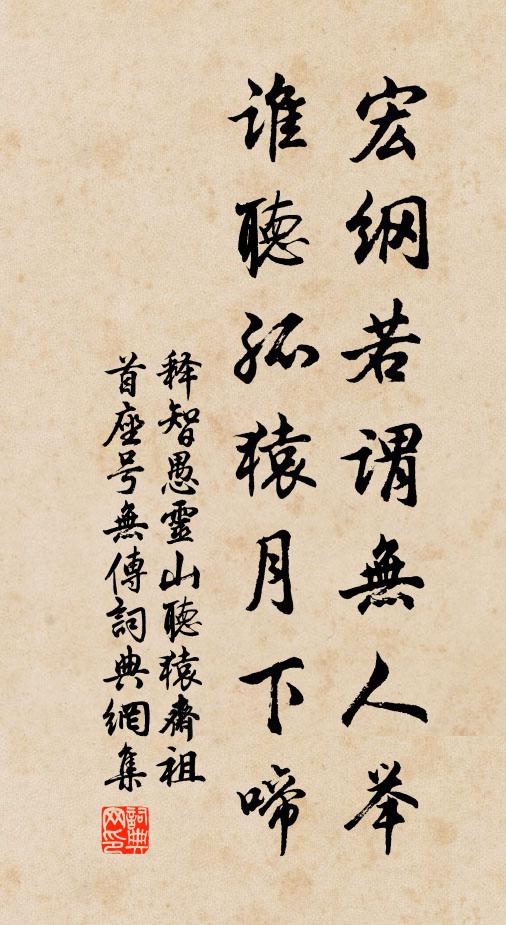 宏纲若谓無人举
谁聽孤猿月下啼
释智愚靈山聽猿齋祖
首座号無傳詞典網集
詞典网印